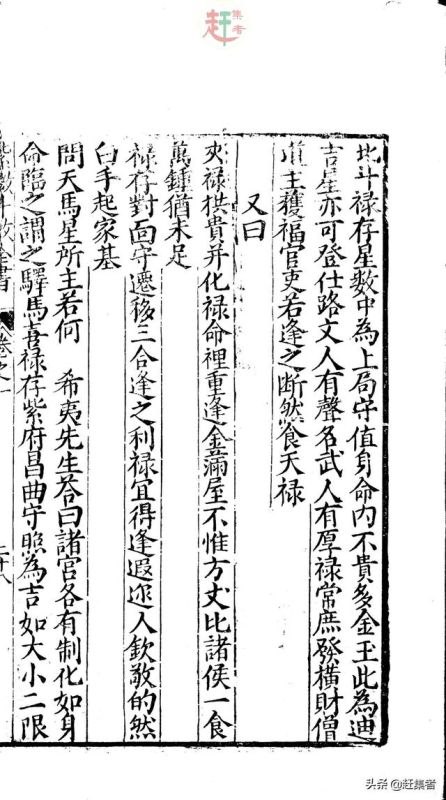 赶集者
北斗禄存星數中為上局守值身命內不貴多金玉此為迪
吉星亦可登仕路文人有聲名武人有厚禄常庶發橫財僧
道主獲福官吏若逢之断然食天禄
又曰
夾禄拱貴并化禄命裡重逢金滿屋不惟方丈比諸侯一食
萬鍾猶未足
禄存對面守遷移三合逢之利禄宜得逢遐迩人欽敬的然
白手起家基
問天馬星所主若何 希夷先生荅曰諸宮各有制化如身
命臨之謂之驛馬喜禄存紫府昌曲守照為吉如大小二限
數斗數全書 卷之一 二十八
头条 @赶集者